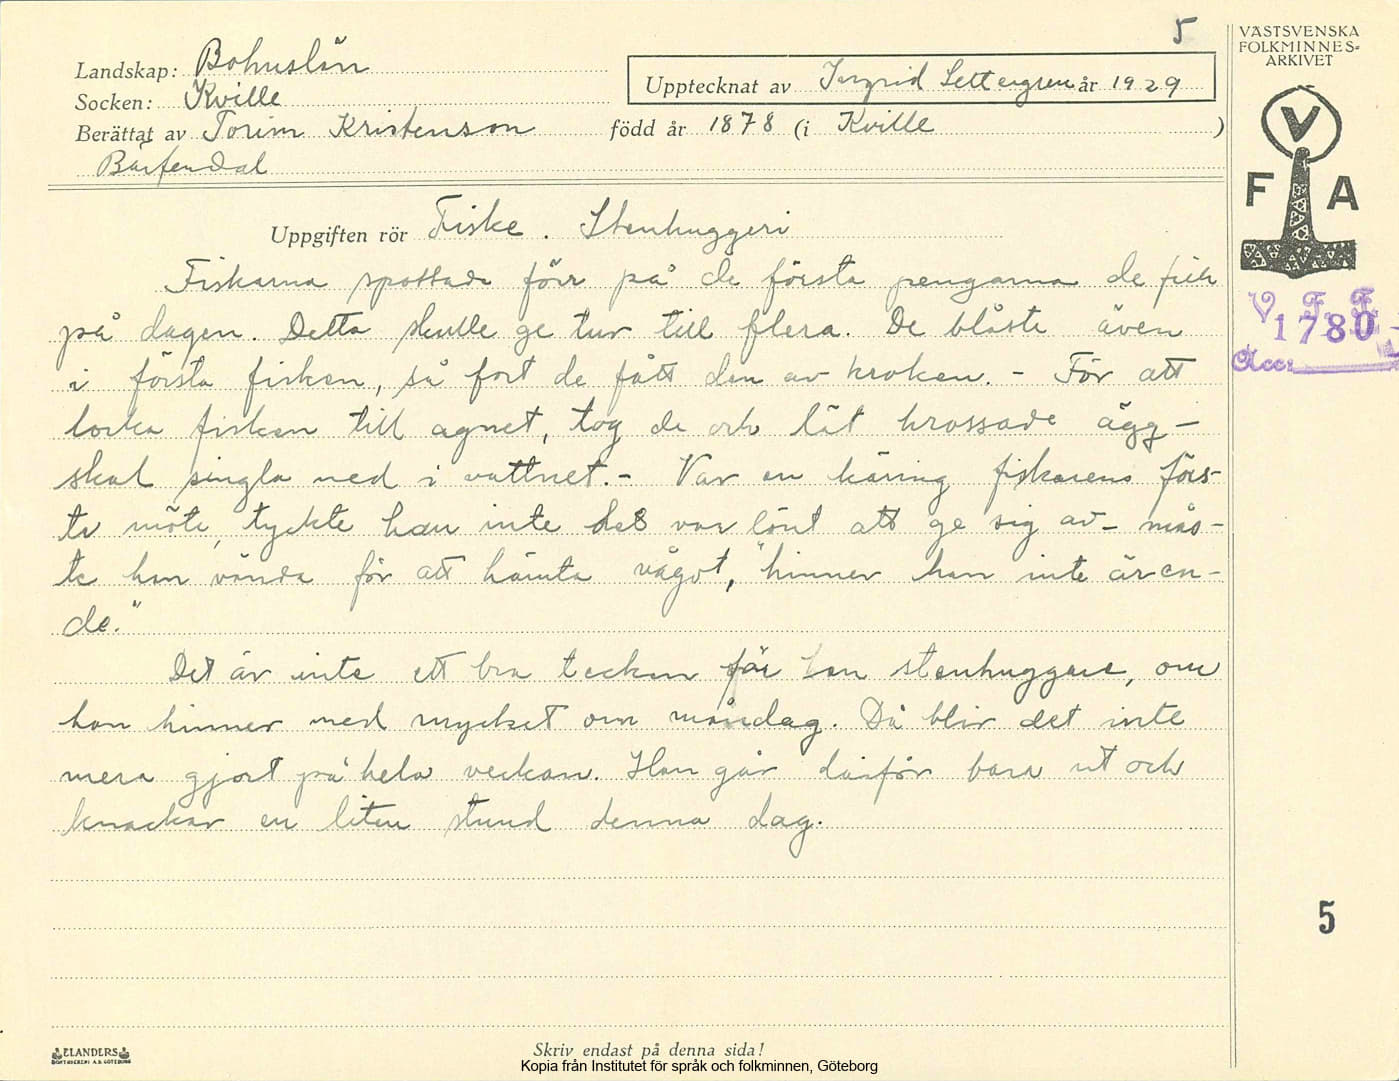 5
VÄSTSVENSKA
FOLKMINNES-
ARKIVET
Landskap: Bohuslän
Upptecknat av Ingrid Settergren år 1929
Socken: Kville
Berättat av Torim Kristenson född år 1878 (i Kville )
Bärfendal
V
F A
Uppgiften rör Fiske. Stenhuggeri
Fiskarna spottade förr på de första pengarna de fick
på dagen. Detta skulle ge tur till flera. De blåste även
i första fisken, så fort de fått den av kroken. - För att
locka fisken till agnet, tog de och lät krossade ägg-
skal singla ned i vattnet. - Var en käring fiskarens förs-
ta möte, tyckte han inte det var lönt att ge sig av - mås-
te han vända för att hämta något, "hinner han inte ären-
de."
Det är inte ett bra tecken för en stenhuggare, om
han hinner med mycket om måndag. Då blir det inte
mera gjort på hela veckan. Han går därför bara ut och
knackar en liten stund denna dag.
V. F. F.
1780
Acc:
5
ELANDERS
BOKTRYCKERI A.B. GÖTEBORG
Skriv endast på denna sida!
Kopia från Institutet för språk och folkminnen, Göteborg